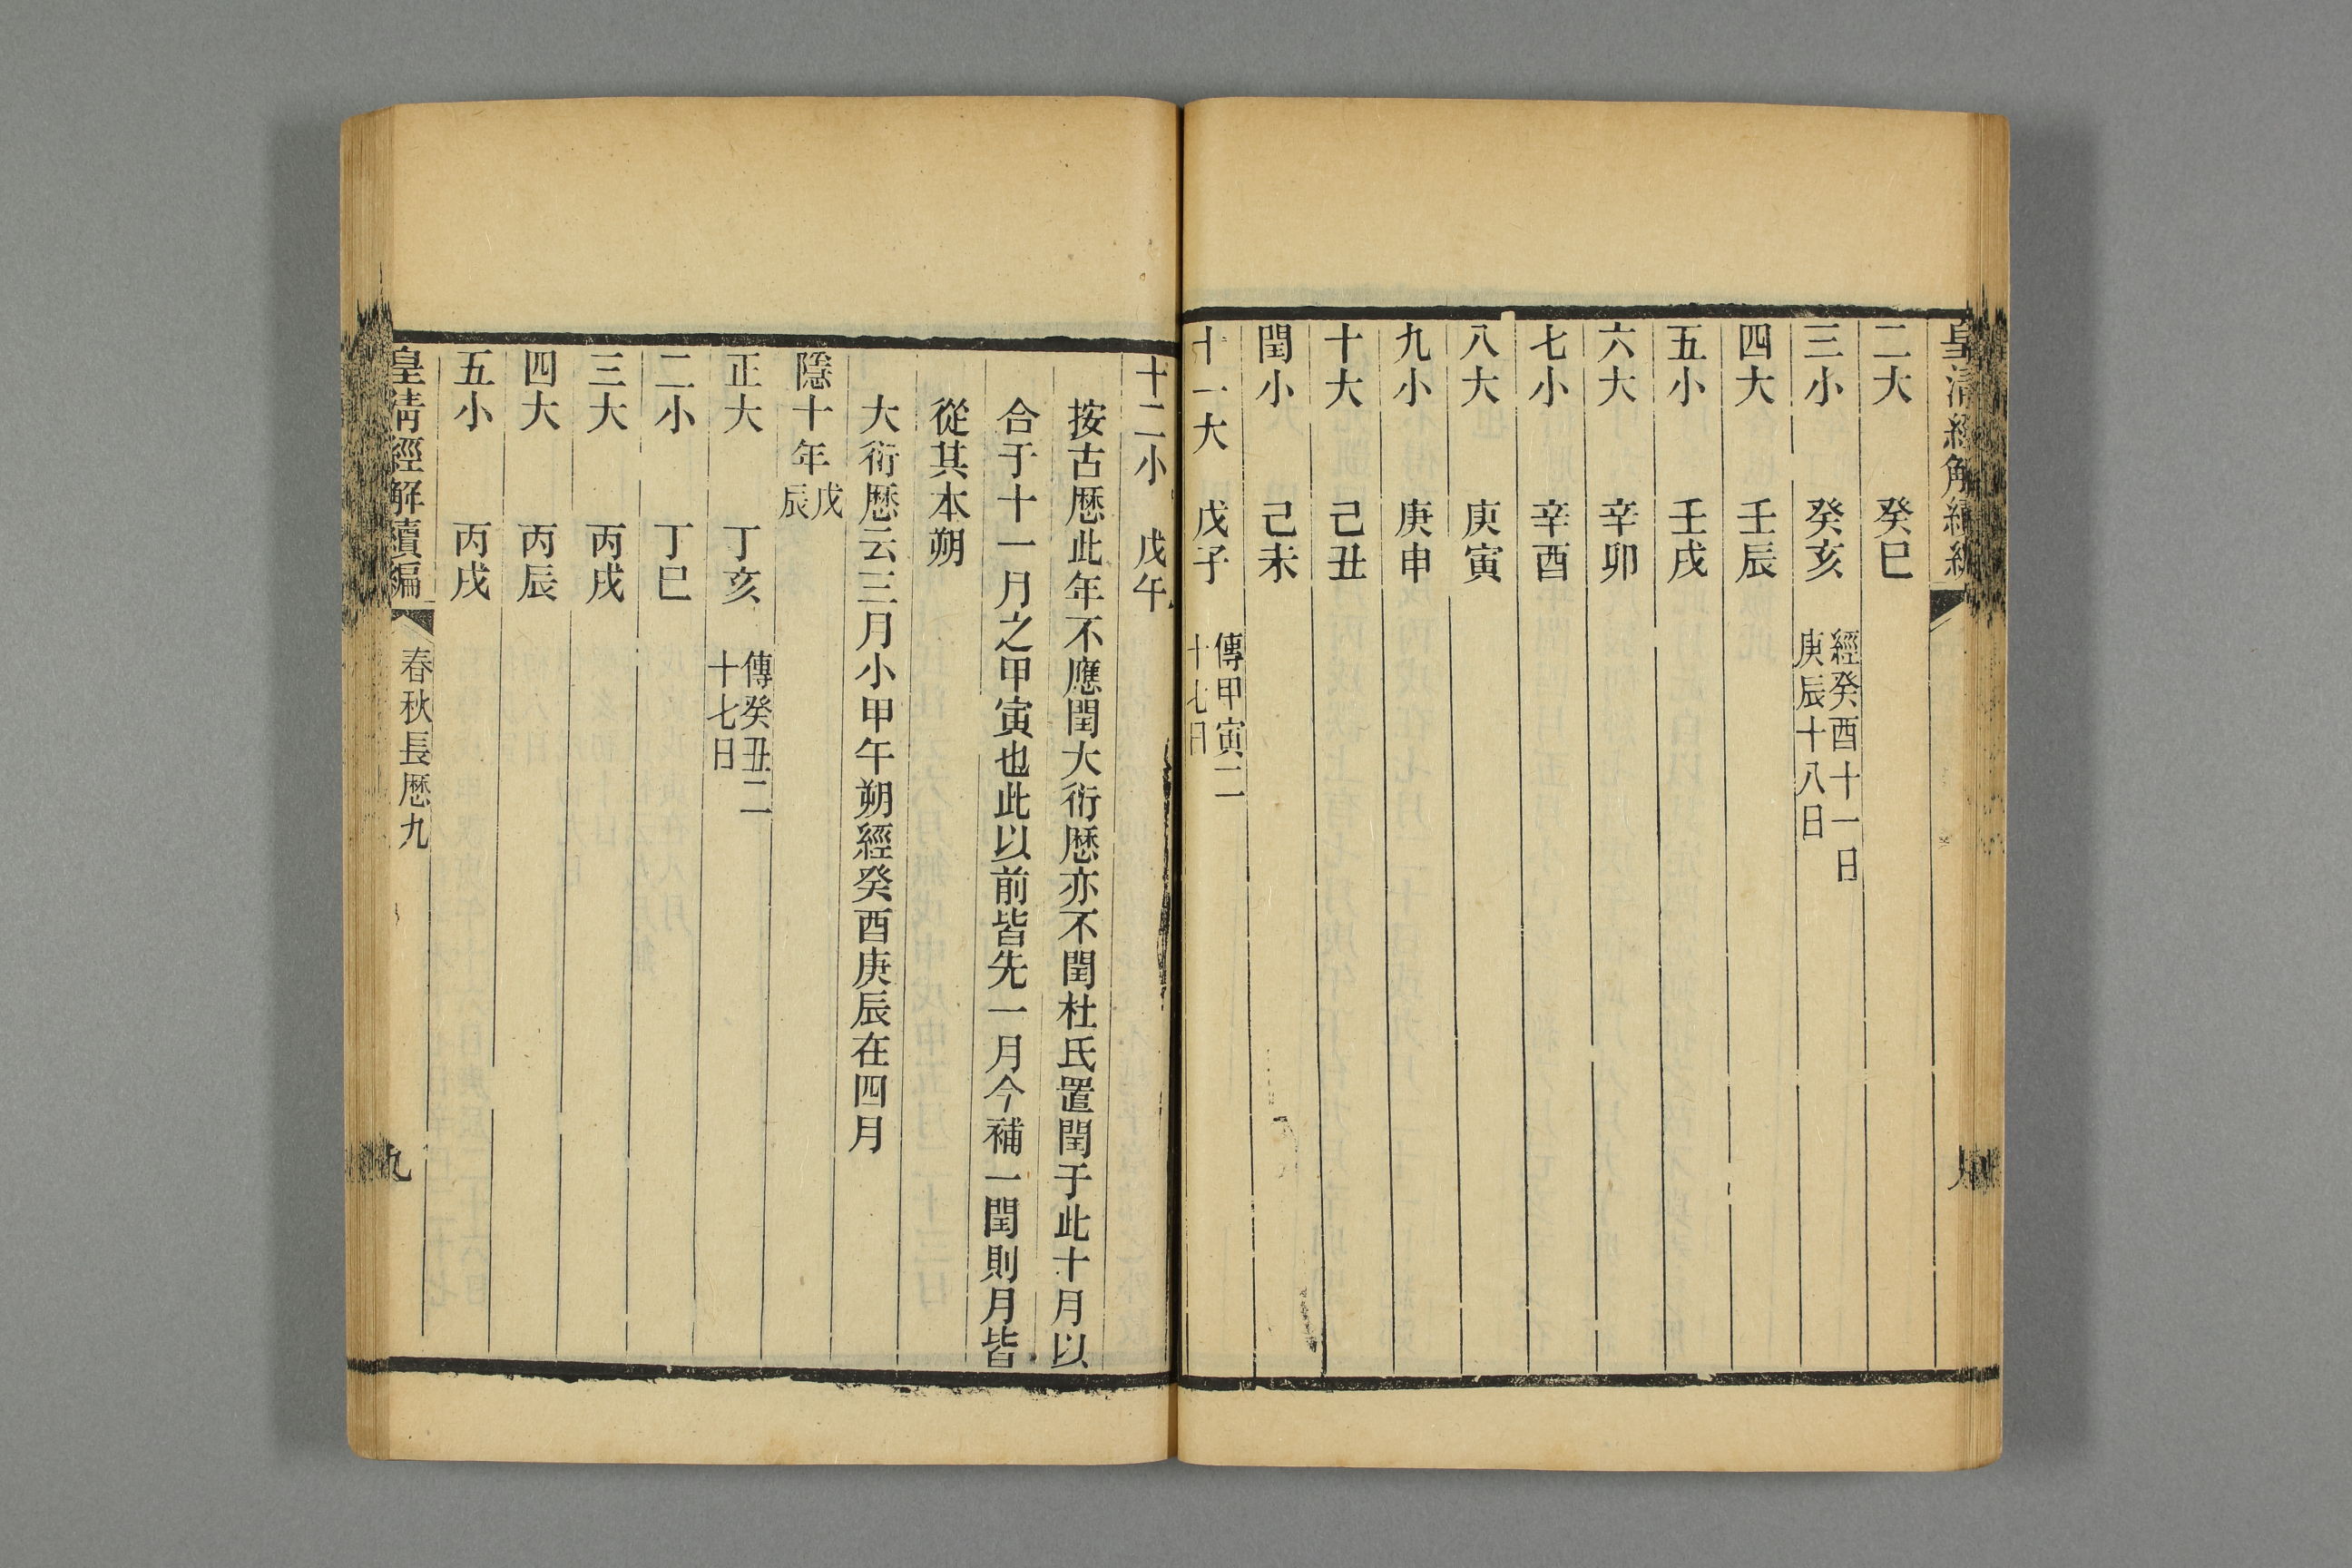 皇清經解續編
二大　癸巳
三小　癸亥　經癸酉十一日
庚辰十八日
四大　壬辰
五小　壬戌
六大　辛卯
七小　辛酉
八大　庚寅
九小　庚申
十大　己丑
閏小　己未
十一大　戊子　傳甲寅二
十七日
十二小　戊午
按古厯此年不應閏大衍厯亦不閏杜氏置閏于此十月以
合于十一月之甲寅也此以前皆先一月今補一閏則月皆
從其本朔
大衍厯云三月小甲午朔經癸酉庚辰在四月
隱十年戊
辰
正大　丁亥　傳癸丑二
十七日
二小　丁巳
三大　丙戌
四大　丙辰
五小　丙戌
皇清經解續編　春秋長厯九　九